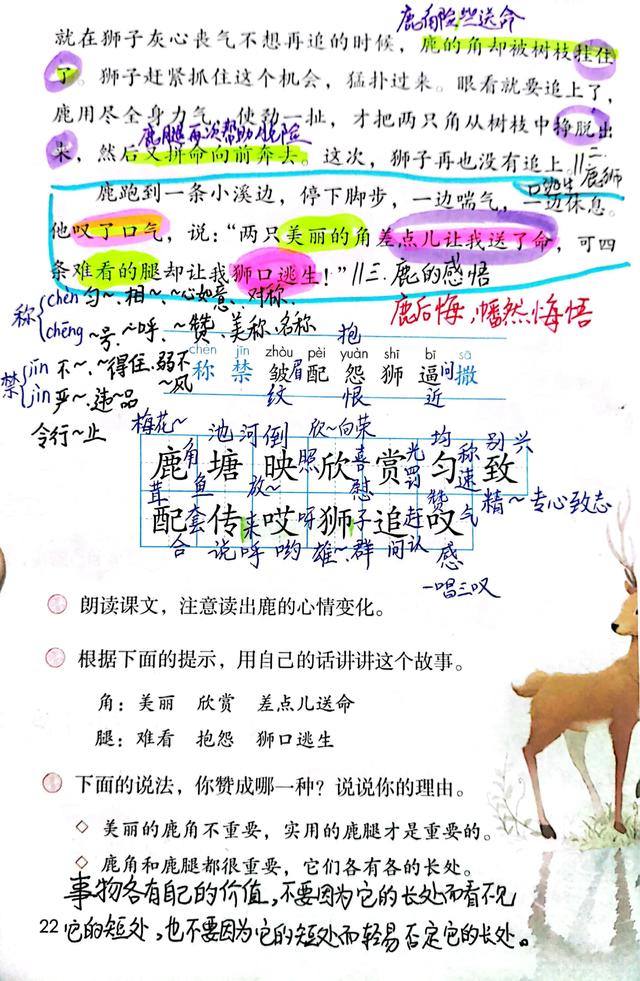 鹿角险些送命
就在狮子灰心丧气不想再追的时候，鹿的角却被树枝挂住
了。狮子赶紧抓住这个机会，猛扑过来。眼看就要追上了，
鹿用尽全身力气，使劲一扯，才把两只角从树枝中挣脱出
鹿腿再次帮助脱险
来，然后又拼命向前奔去。这次，狮子再也没有追上。//二.鹿狮
口逃生
鹿跑到一条小溪边，停下脚步，一边喘气，一边休息。
他叹了口气，说：“两只美丽的角差点儿让我送了命，可四
条难看的腿却让我狮口逃生！”//三.鹿的感悟
鹿后悔，幡然悔悟
称 chèn 匀~、相~、~心如意、对称.
chēng ~号、~呼、~赞、美称、名称
禁 jīn 不~、~得住、弱不~风
jìn 严~、违~品
令行~止
chèn jīn zhòu pèi yuàn shī bī sā
称 禁 皱 配 怨 狮 逼 撒
抱 眉 问
纹 恨 近
梅花~ 池 河 倒 欣~向荣 均 别 兴
鹿 塘 映 欣 赏 匀 致
角 照 喜 光 称
茸 鱼 放~ 慰 罚 速 精~ 专心致志
赞
配 传 哎 狮 追 叹
套 来 呀 子 赶 气
合 说 呼 哟 雄~ 群 问 认 感
一唱三叹
朗读课文，注意读出鹿的心情变化。
根据下面的提示，用自己的话讲讲这个故事。
角：美丽 欣赏 差点儿送命
腿：难看 抱怨 狮口逃生
下面的说法，你赞成哪一种？说说你的理由。
◇ 美丽的鹿角不重要，实用的鹿腿才是重要的。
◇ 鹿角和鹿腿都很重要，它们各有各的长处。
事物各有自己的价值，不要因为它的长处而看不见
22 它的短处，也不要因为它的短处而轻易否定它的长处。